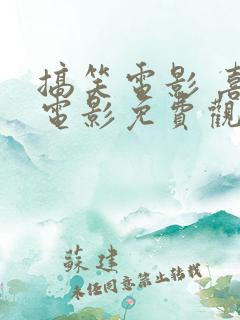 搞笑電影 喜
電影免費觀
蘇建
未經同意禁止轉載